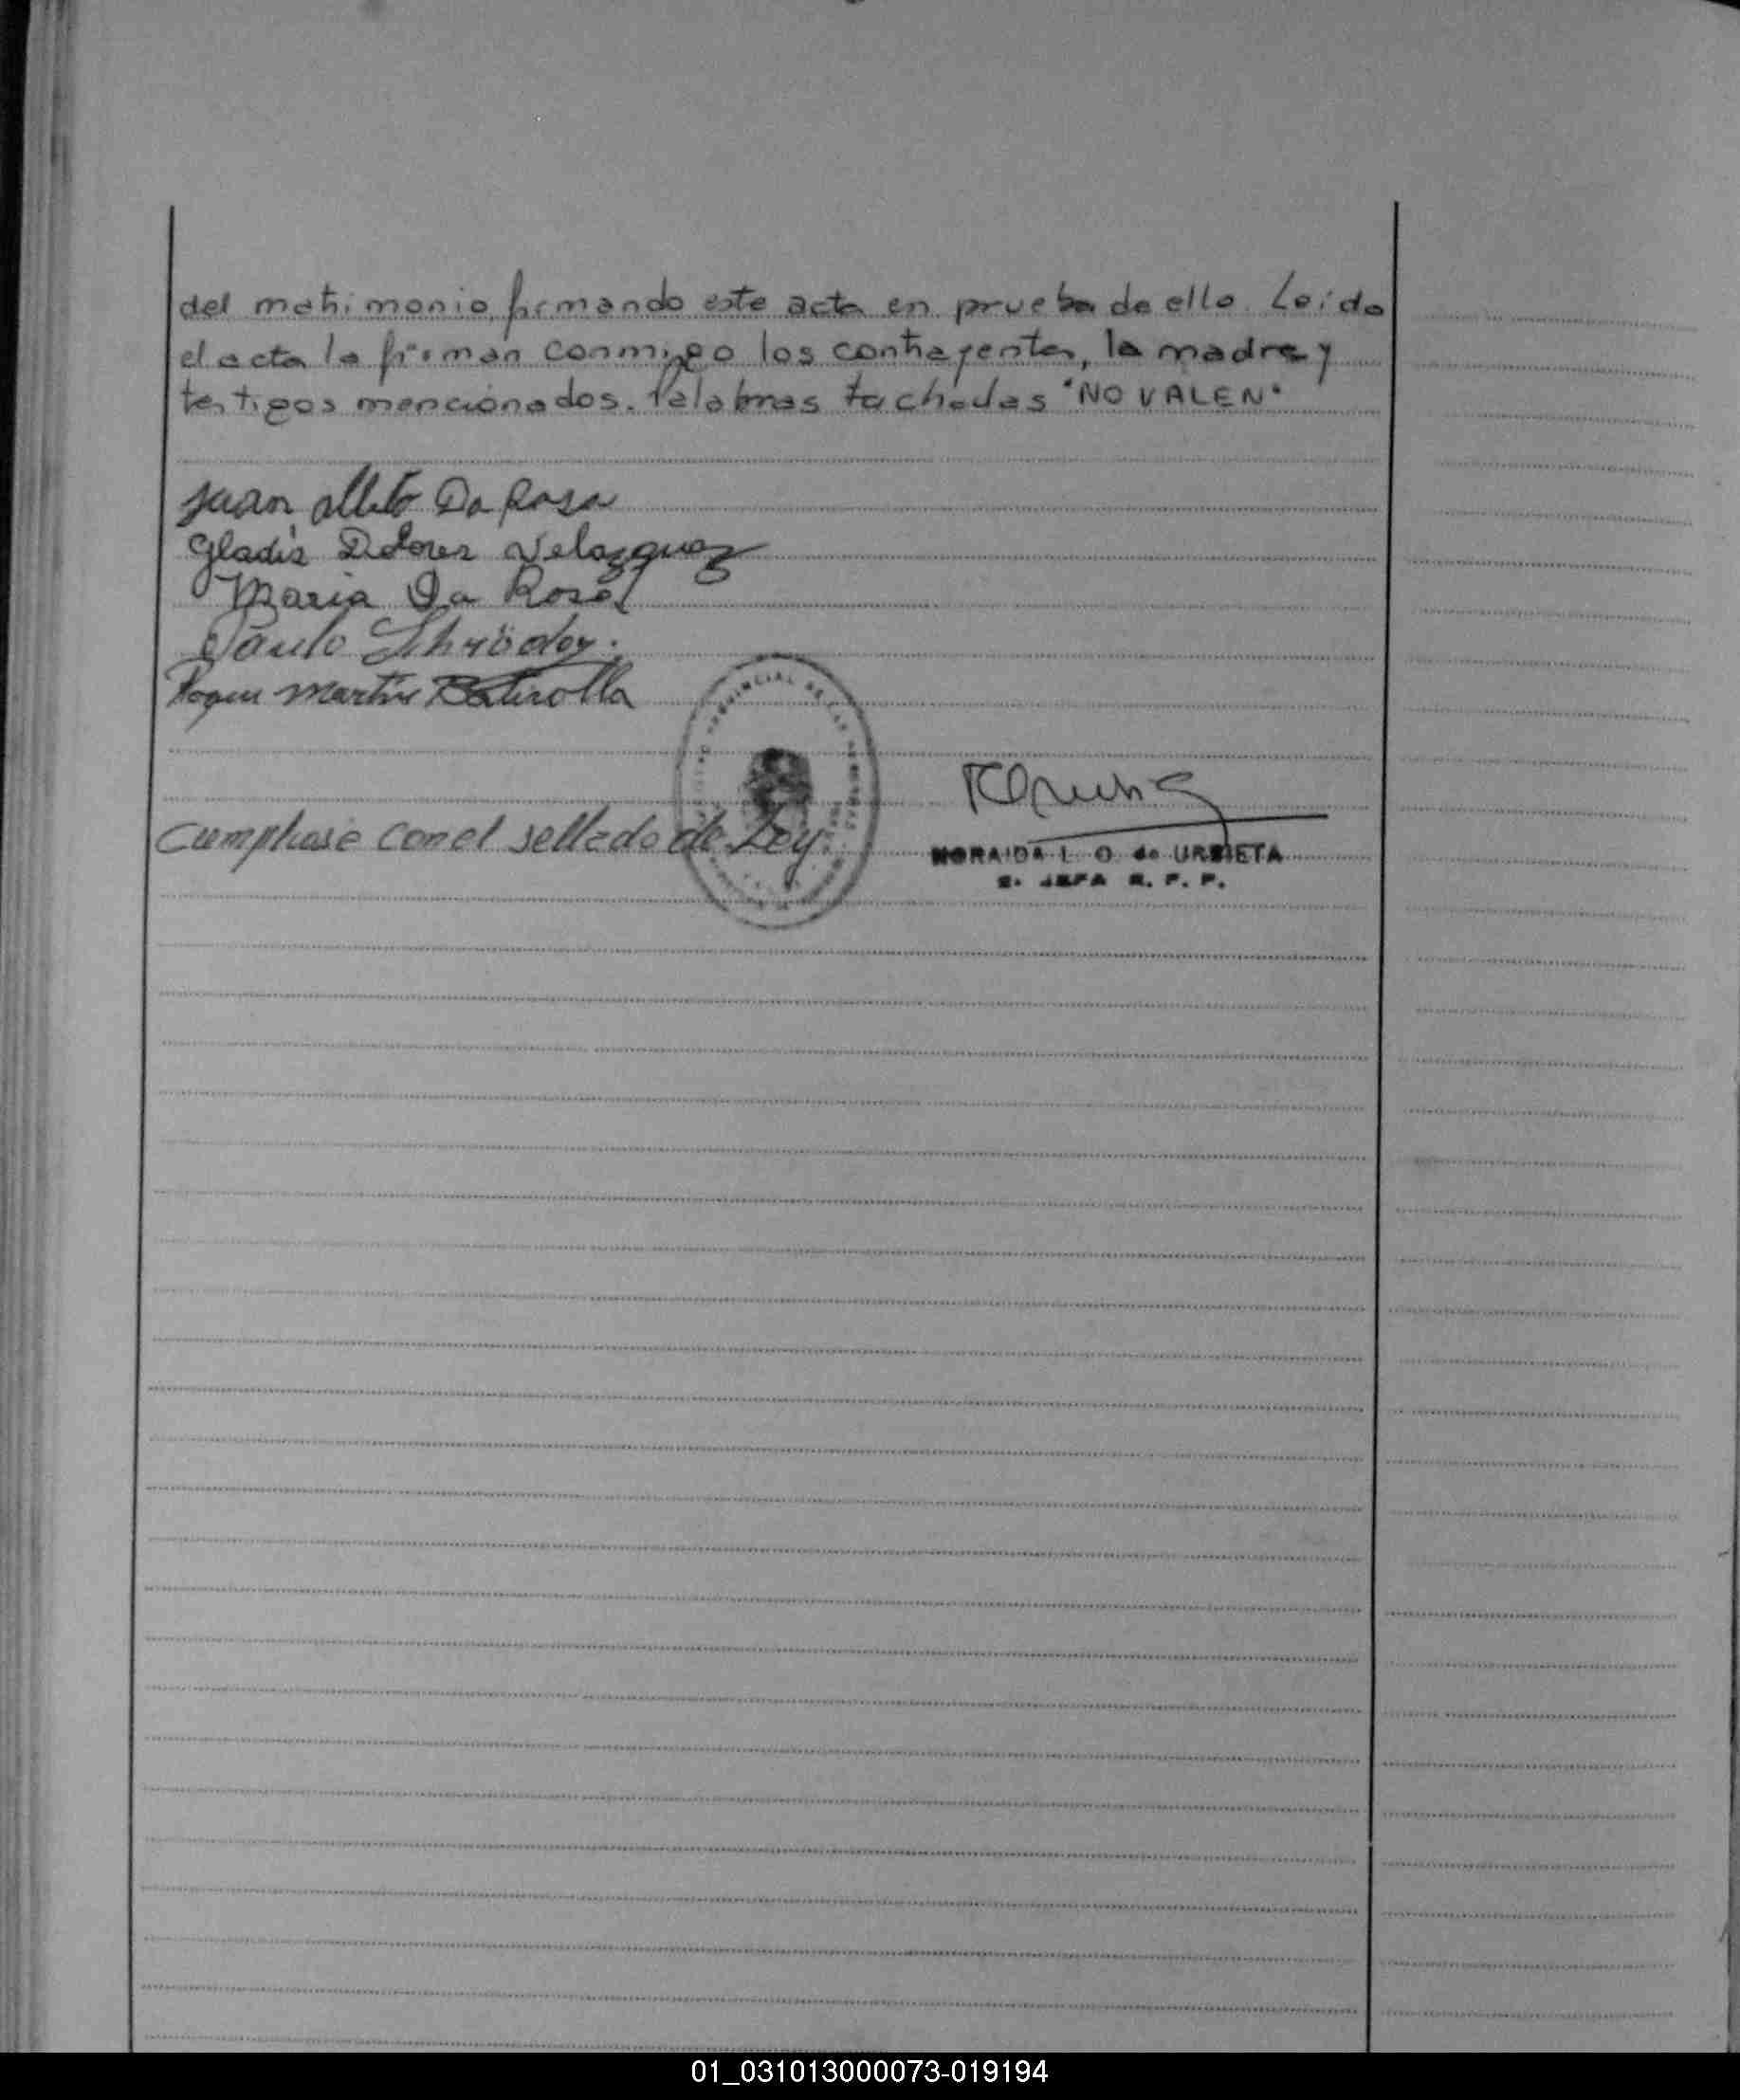 del matrimonio, firmando este acta en prueba de ello. Leída
el acta la firman conmigo los contrayentes, la madre y
testigos mencionados. Palabras tachadas "NO VALEN"
Juan Alberto Da Rosa
Gladis Dolores Velazquez
Maria Da Rosa
Paulo Shröder.
Roque Martin
Cumplase con el sellado de Ley.
NORAIDA L. O. de URBIETA
JEFA R. P. P.
01_031013000073-019194